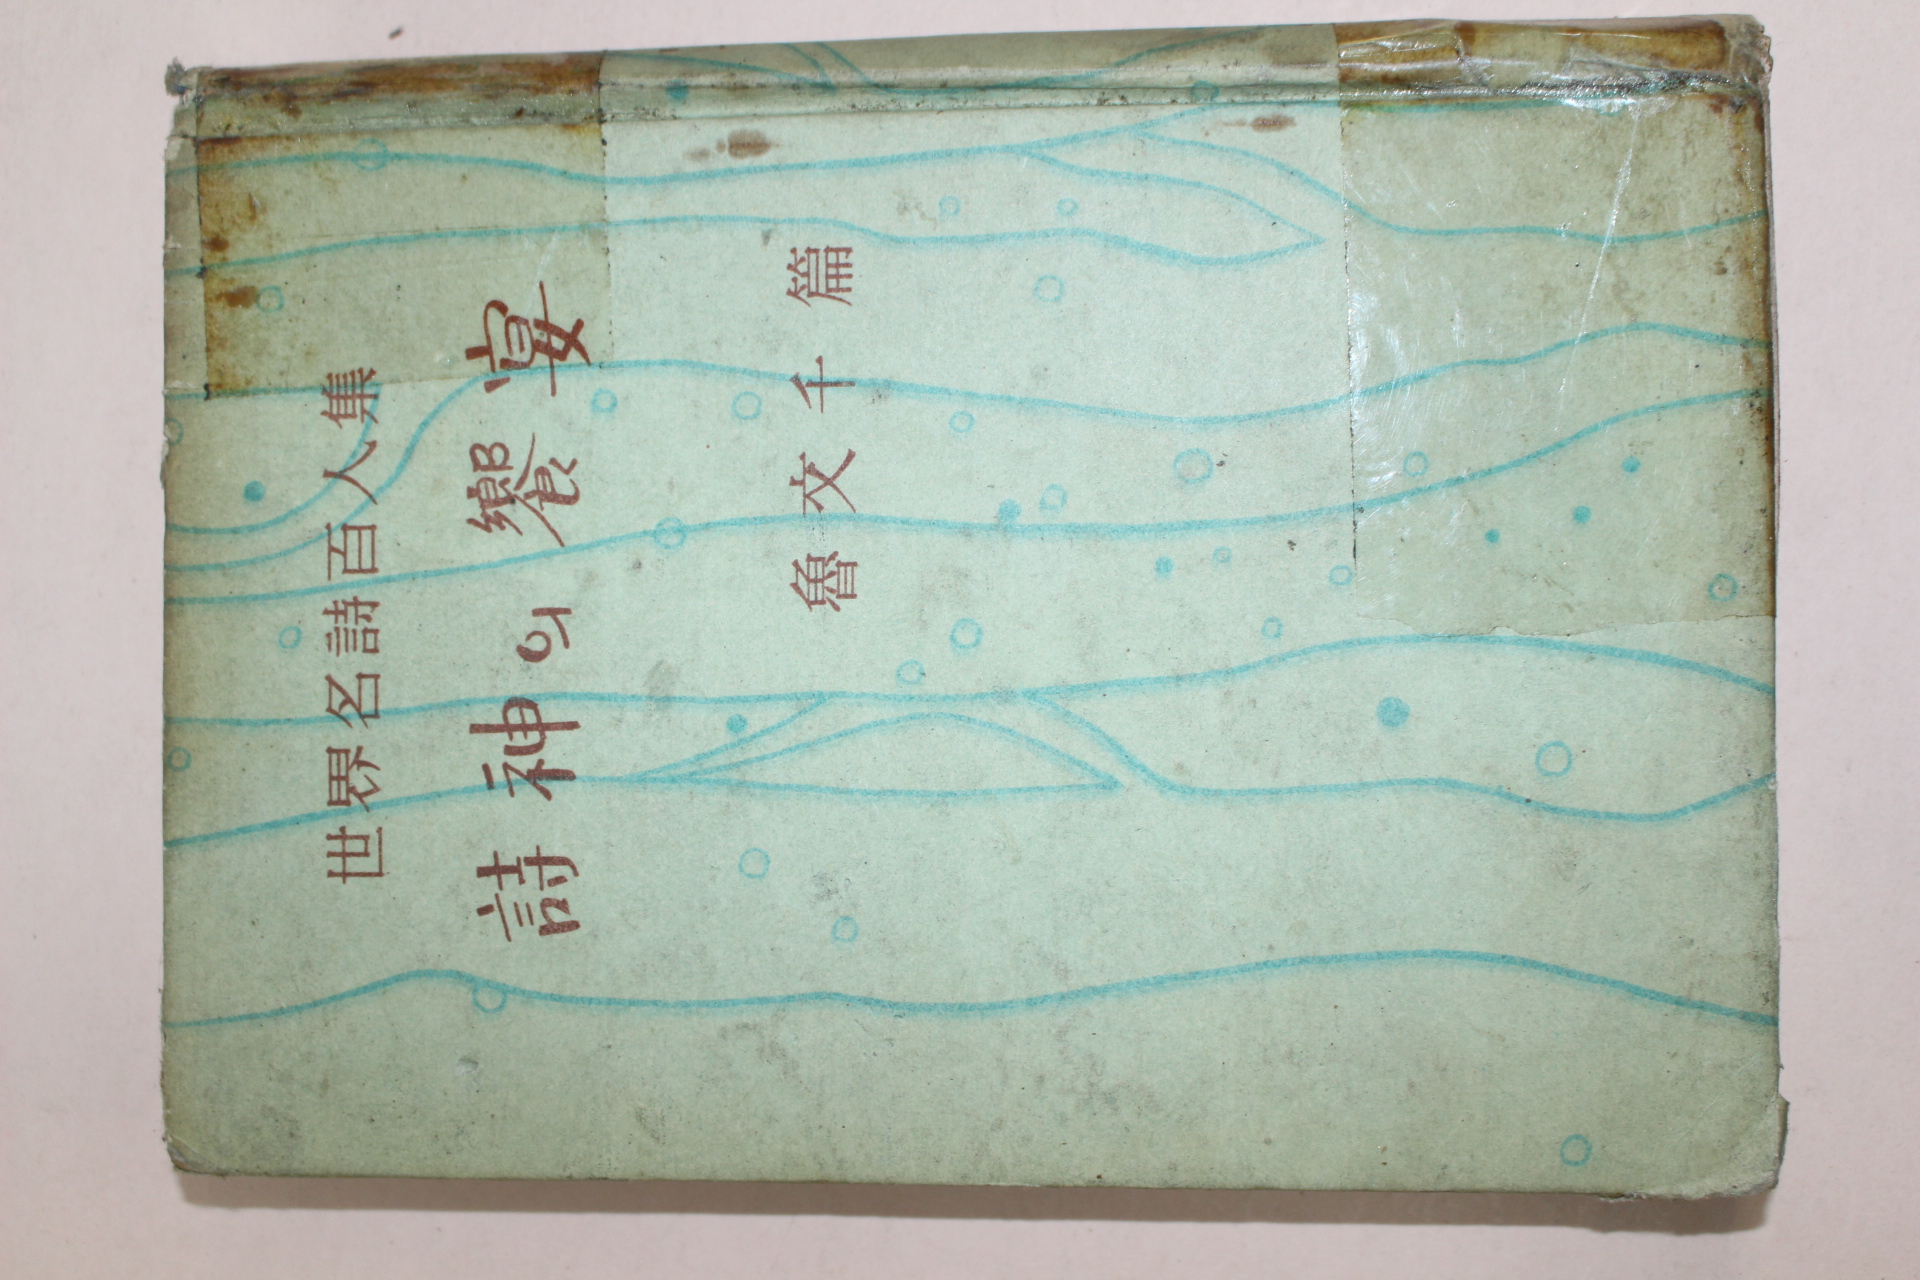 世界名詩百人集
詩神의 饗宴
魯文千 篇